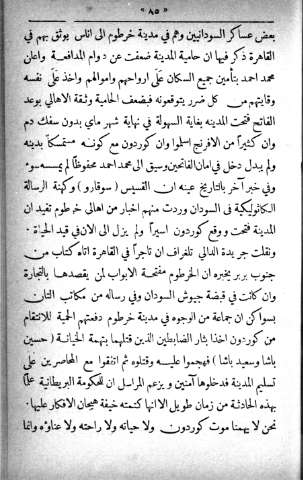 « ٨٥ »
بعض عساكر السودانيين وهم في مدينة خرطوم الى اناس يوثق بهم في
القاهرة ذكر فيها ان حامية المدينة ضعفت عن دوام المدافعة واعلن
محمد احمد بتأمين جميع السكان على ارواحهم واموالهم واخذ على نفسه
وقايتهم من كل ضرر يتوقعونه فبضعف الحامية وثقة الاهالي بوعد
الفاتح فتحت المدينة بغاية السهولة في نهاية شهر ماي بدون سفك دم
وان كثيرا من الافرنج اسلموا وان كوردون مع كونه متمسكا بدينه
ولم يبدل دخل في امان الفاتحين وسيق الى محمد احمد محفوظا لم يمسه سوء
وفي خبر آخر بالتاريخ عينه ان القسيس (سوقارو) وكهنة الرسالة
الكاثوليكية في السودان وردت منهم اخبار من اهالي خرطوم تفيد ان
المدينة فتحت ووقع كوردون اسيرا ولم يزل الى الان في قيد الحياة ·
ونقلت جريدة الدالي تلغراف ان تاجرا في القاهرة اتاه كتاب من
جنوب بربر يخبره ان الخرطوم مفتحة الابواب لمن يقصدها بالتجارة
وان كانت في قبضة جيوش السودان وفي رسالة من مكاتب التان
بسواكن ان جماعة من الوجوه في مدينة خرطوم دفعتهم الحمية للانتقام
من كوردون اخذا بثار الضابطين الذين قتلهما بتهمة الخيانة (حسين
باشا وسعيد باشا) فهجموا عليه وقتلوه ثم اتفقوا مع المحاصرين على
تسليم المدينة فدخلوها آمنين ويزعم المراسل ان للحكومة البريطانية علما
بهذه الحادثة من زمان طويل الا انها كتمته خيفة هيجان الافكار عليها·
نحن لا يهمنا موت كوردون ولا حياته ولا راحته ولا عناؤه وانما